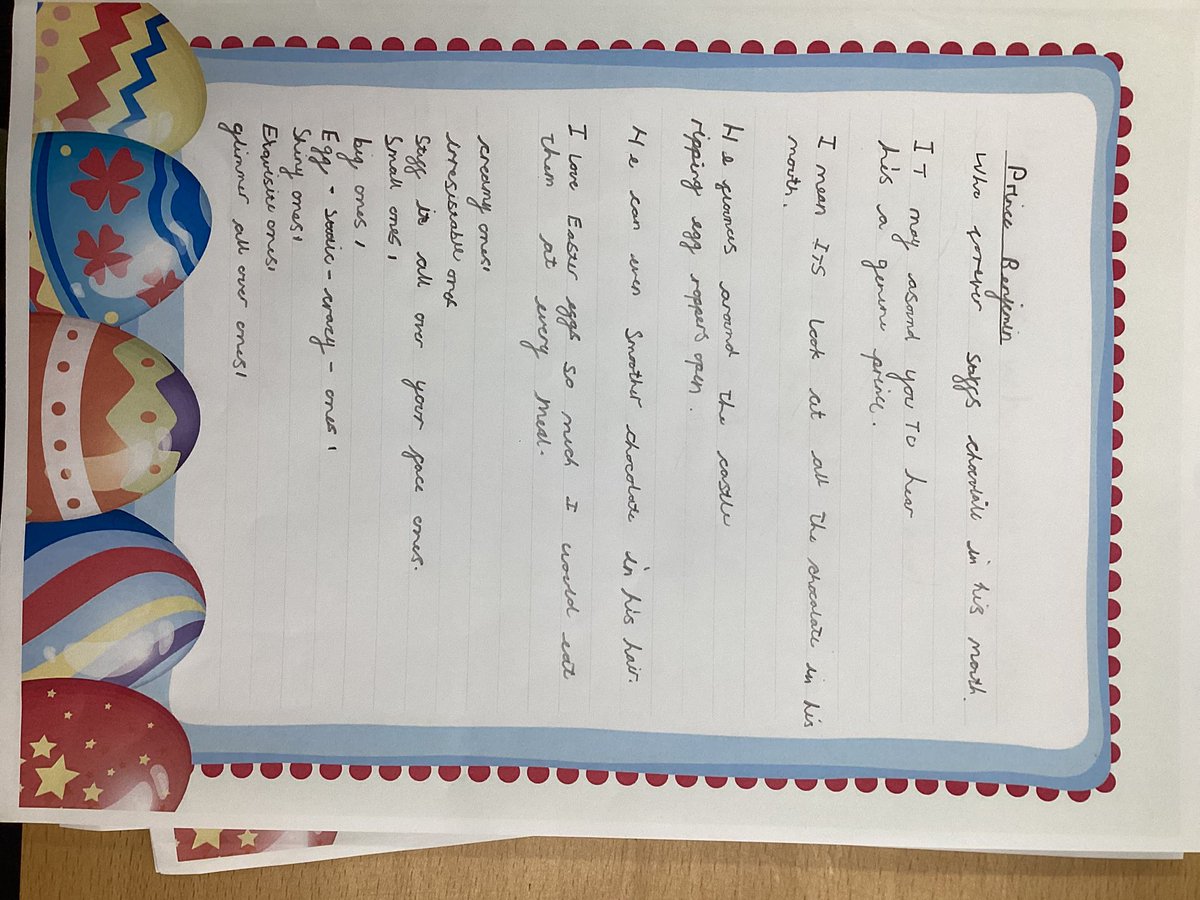 Prince Benjemin
Who forever stuffs chocolate in his mouth.
IT may asound you To hear
his a genune prince.
I mean ITS look at all the chocolate in his
mouth.
He prances around the castle
ripping egg rappers open.
He can even Smoother chocolate in his hair.
I love Easter eggs so much I would eat
them at every Meal.
creamy ones,
irresistable ones
Stuff it all over your face ones.
Small ones,
big ones,
Egg - stodic - crazy - ones,
Shiny ones,
Exquisite ones,
glimmer all over ones,